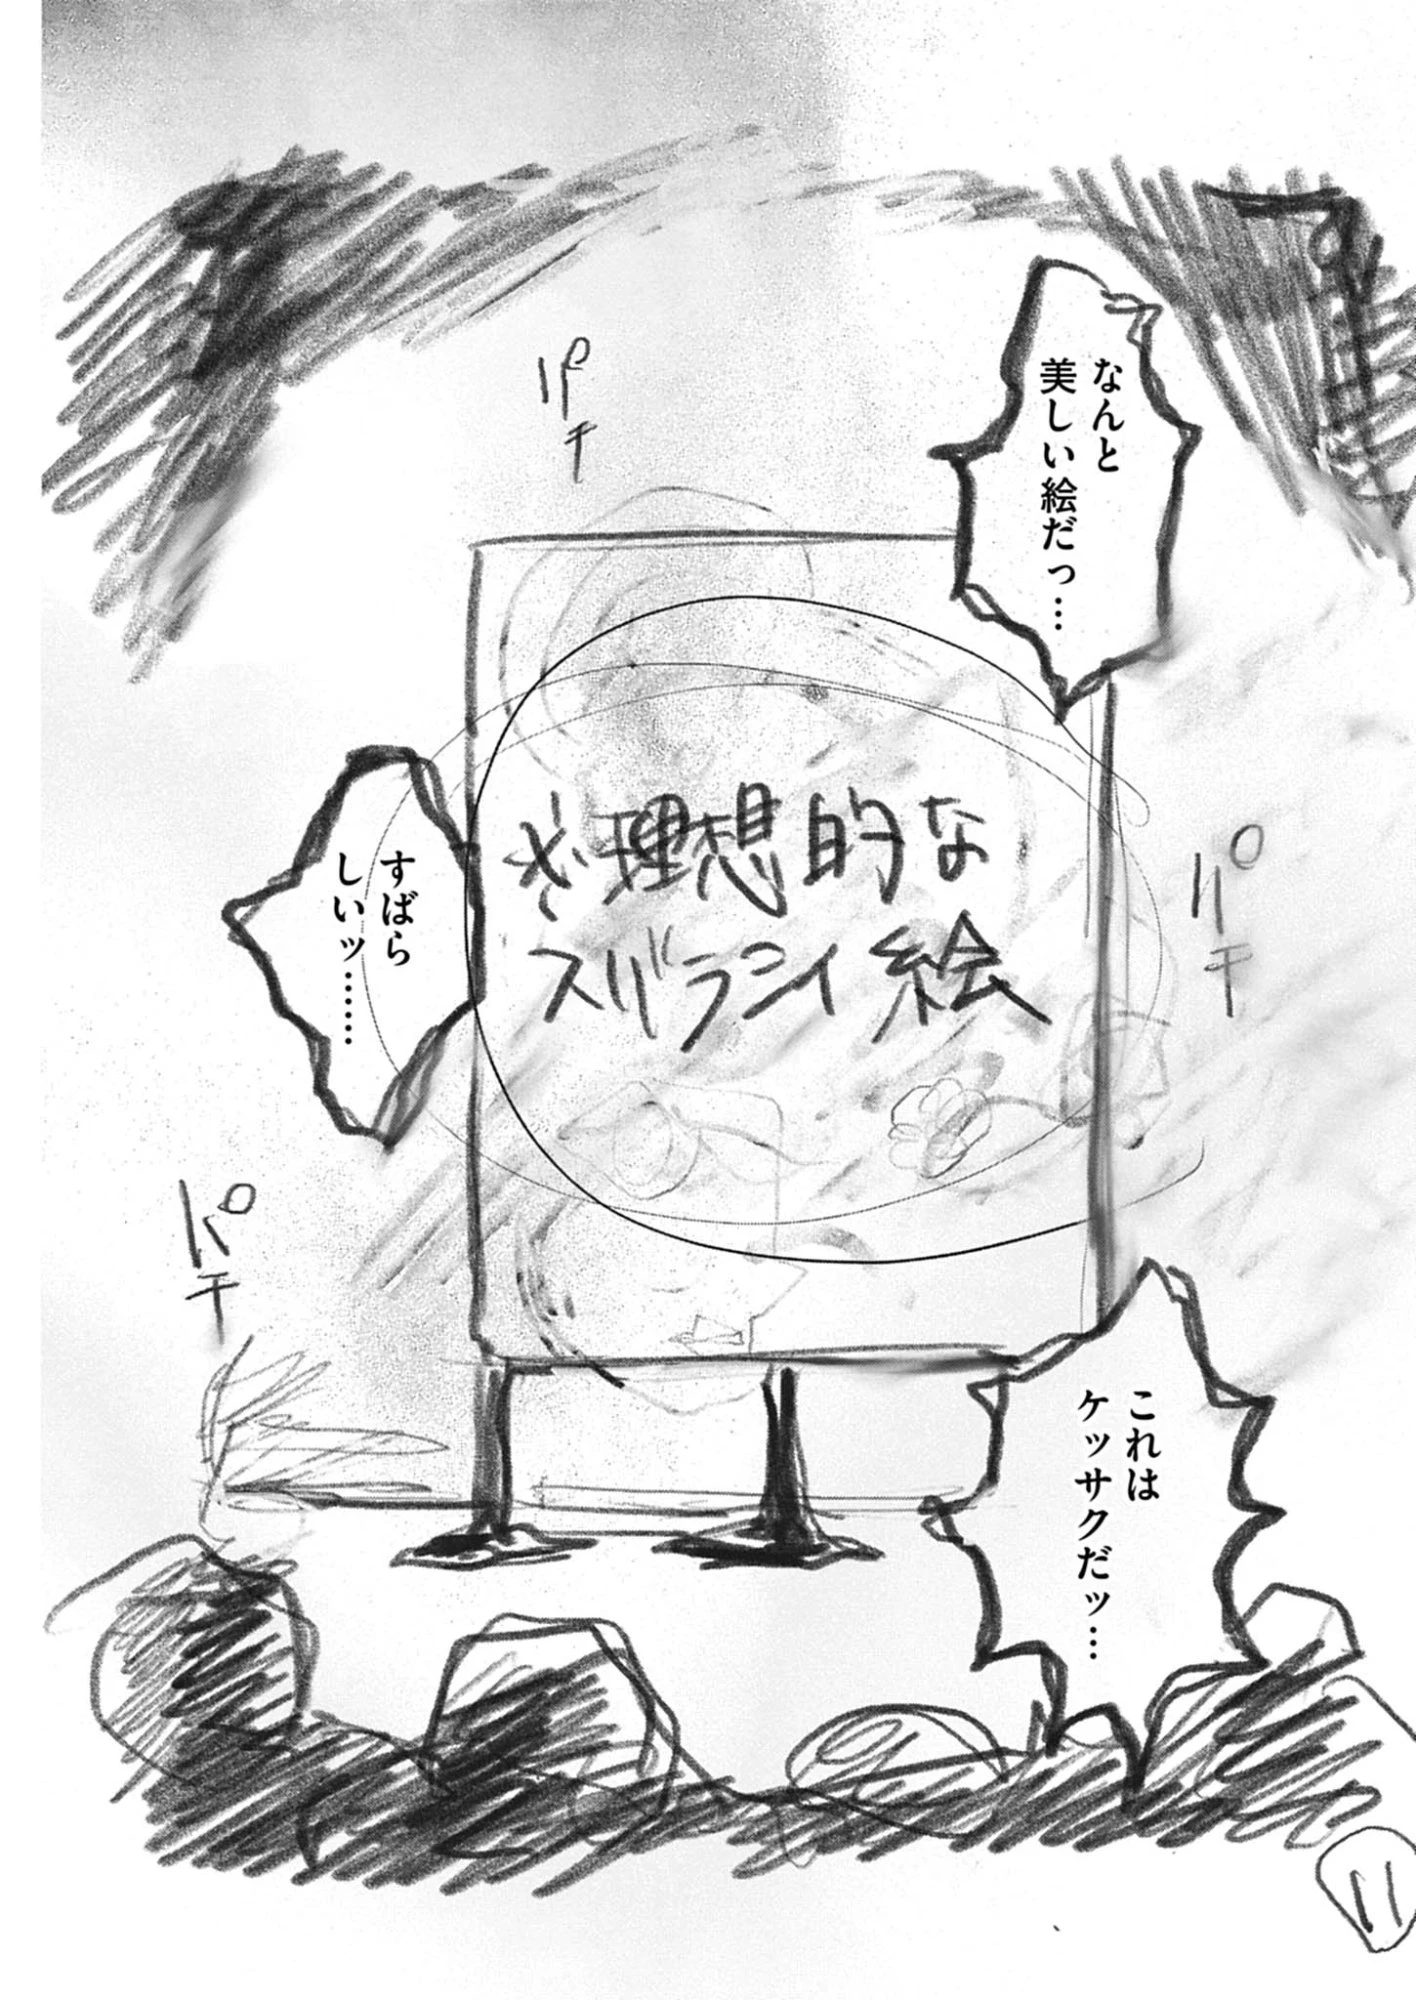 なんと
美しい絵だっ…
パチ
パチ
すばら
しいッ……
※理想的な
スバラシイ絵
パチ
これは
ケッサクだッ…
11